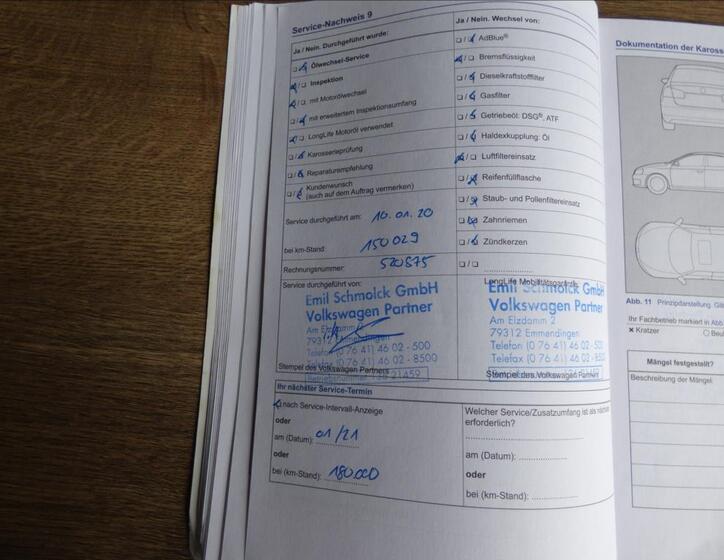 Service-Nachweis 9
Ja / Nein. Durchgeführt wurde:
Ölwechsel-Service
Inspektion
mit Motorölwechsel
mit erweitertem Inspektionsumfang
LongLife Motoröl verwendet
Karosserieprüfung
Reparaturempfehlung
Kundenwunsch
(auch auf dem Auftrag vermerken)
Service durchgeführt am: 16.01.20
bei km-Stand: 150029
Rechnungsnummer: 520875
Service durchgeführt von:
Emil Schmolck GmbH
Volkswagen Partner
Am Elzdamm 2
79312 Emmendingen
Telefon (0 76 41) 46 02 - 500
Telefax (0 76 41) 46 02 - 8500
Stempel des Volkswagen Partners
Betriebsnummer 21459
Ihr nächster Service-Termin
nach Service-Intervall-Anzeige
oder
am (Datum): 01/21
oder
bei (km-Stand): 180.000
Ja / Nein. Wechsel von:
AdBlue®
Bremsflüssigkeit
Dieselkraftstofffilter
Gasfilter
Getriebeöl: DSG®, ATF
Haldexkupplung: Öl
Luftfiltereinsatz
Reifenfüllflasche
Staub- und Pollenfiltereinsatz
Zahnriemen
Zündkerzen
LongLife Mobilitätsgarantie
Emil Schmolck GmbH
Volkswagen Partner
Am Elzdamm 2
79312 Emmendingen
Telefon (0 76 41) 46 02 - 50
Telefax (0 76 41) 46 02 - 8
Stempel des Volkswagen Partners
Welcher Service/Zusatzumfang ist als
erforderlich?
am (Datum):
oder
bei (km-Stand):
Dokumentation der Kaross
Abb. 11 Prinzipdarstellung.
Ihr Fachbetrieb markiert in Abb.
× Kratzer
Mängel festgestellt?
Beschreibung der Mängel